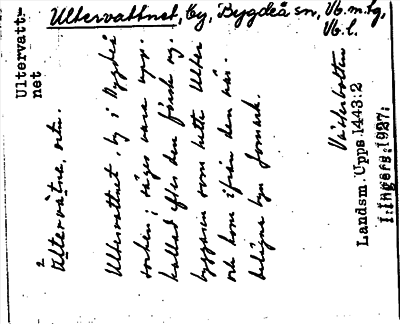 Ultervattnet, by, Bygdeå sn, Vb. m. tg,
Vb. l.
Ultervatt-
net
Ultervatnə, ortn.
Ultervattnet, by i Bygdeå
socken; säges vara upp-
kallad efter den förste ny-
byggaren som hette Ulter
och kom ifrån den när-
belägna byn Gumark.
Västerbotten
Landsm. Upps. 1443:2
I. Ingers. 1927.